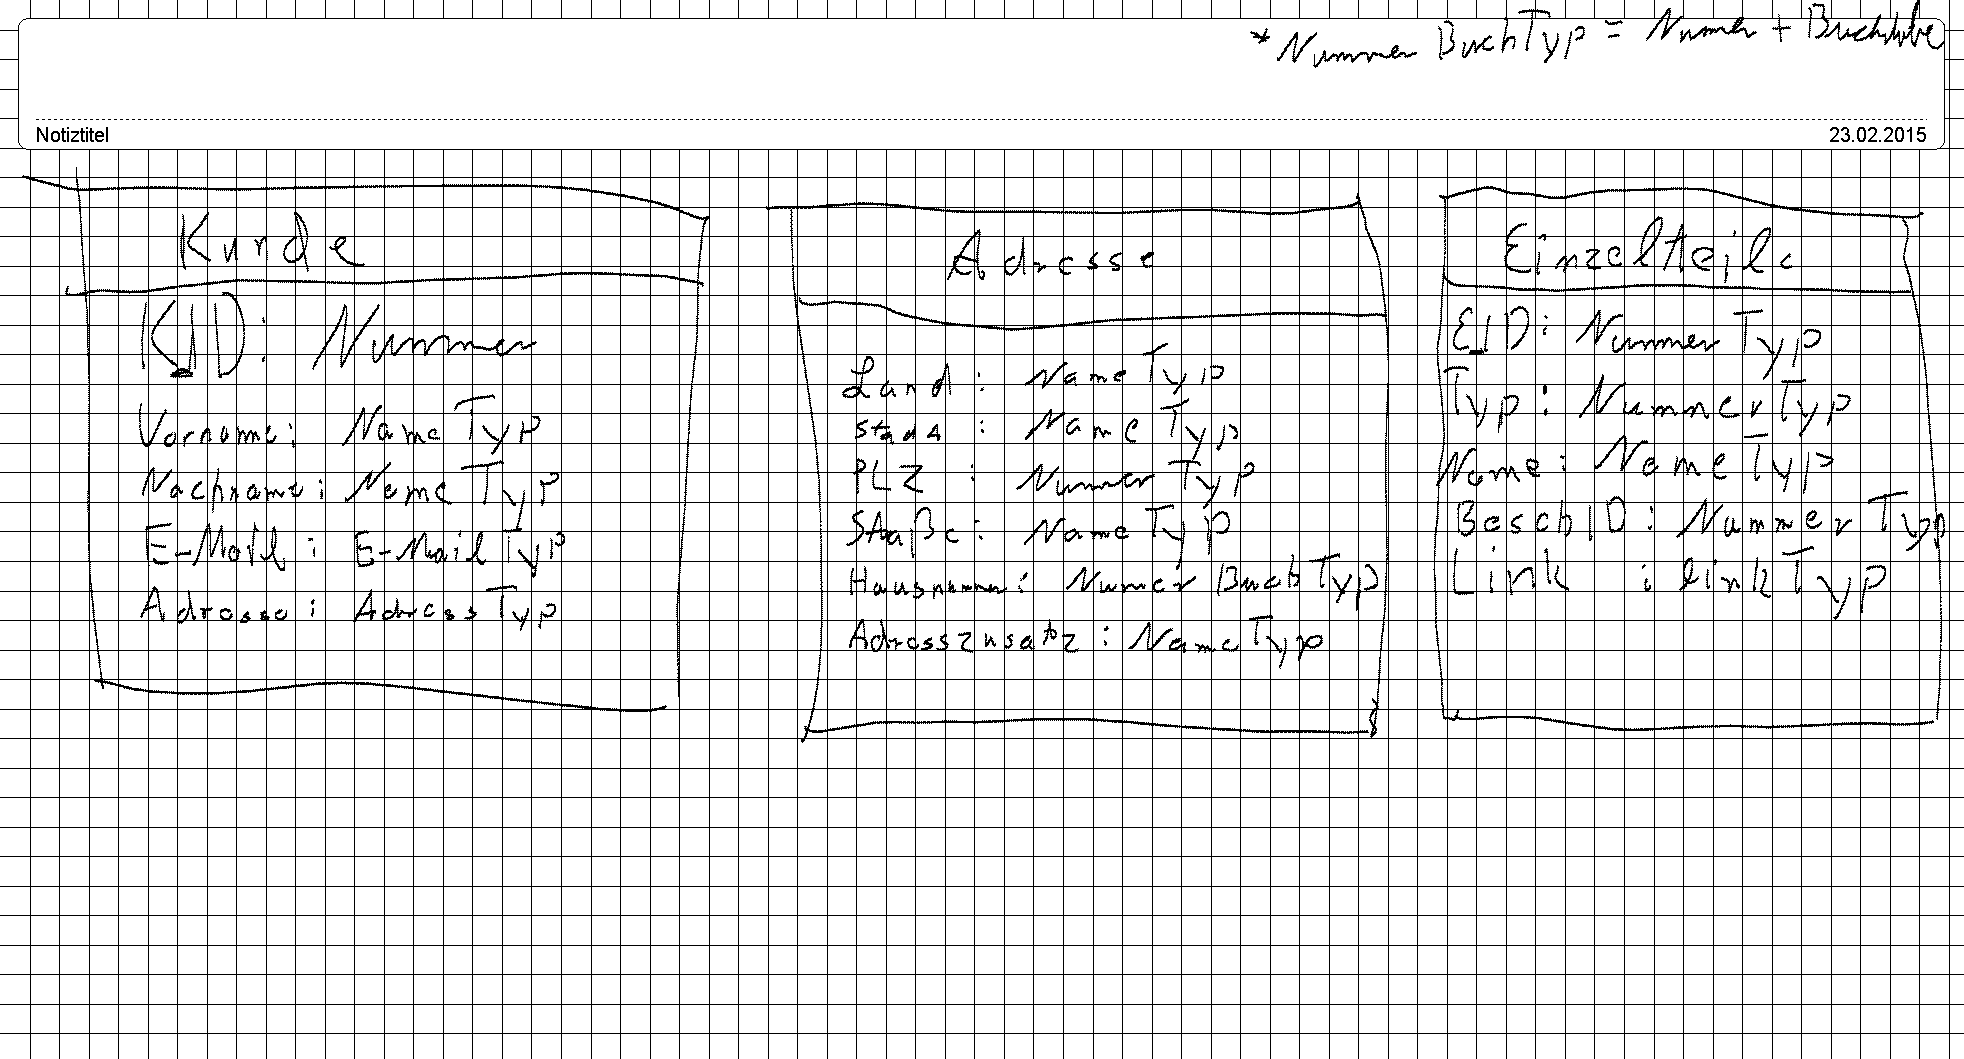 *Nummer BuchTyp = Numer + Buchstabe
Notiztitel
23.02.2015
Kunde
KID: Nummer
Vorname: NameTyp
Nachname: NameTyp
E-Mail: E-MailTyp
Adresse: AdressTyp
Adresse
Land: NameTyp
Stadt: NameTyp
PLZ: NumerTyp
Staße: NameTyp
Hausnummer: Numer BuchTyp
Adresszusatz: NameTyp
Einzelteile
EID: NummerTyp
Typ: NummerTyp
Name: NameTyp
BeschID: NummerTyp
Link: linkTyp